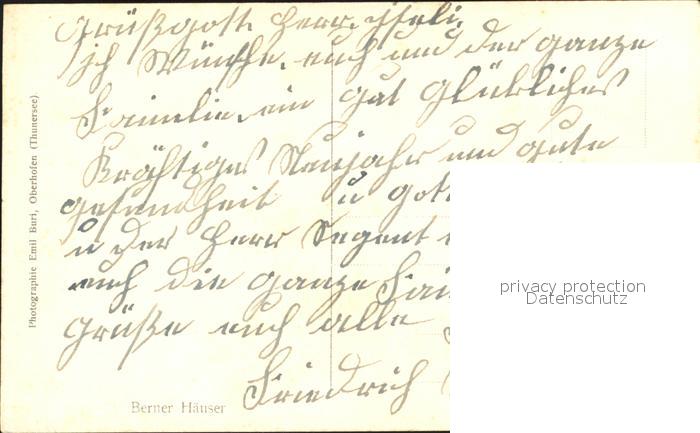 Grüßgott Herr Iseli,
ich Wünsche euch und der ganze
Familie ein gut Glückliches
Kräftiges Neujahr und gute
gesundheit u Gott
u der Herr Segent
euch die ganze
Grüße euch alle
Friedrich
Berner Häuser
Photographie Emil Buri, Oberhofen (Thunersee).
privacy protection
Datenschutz